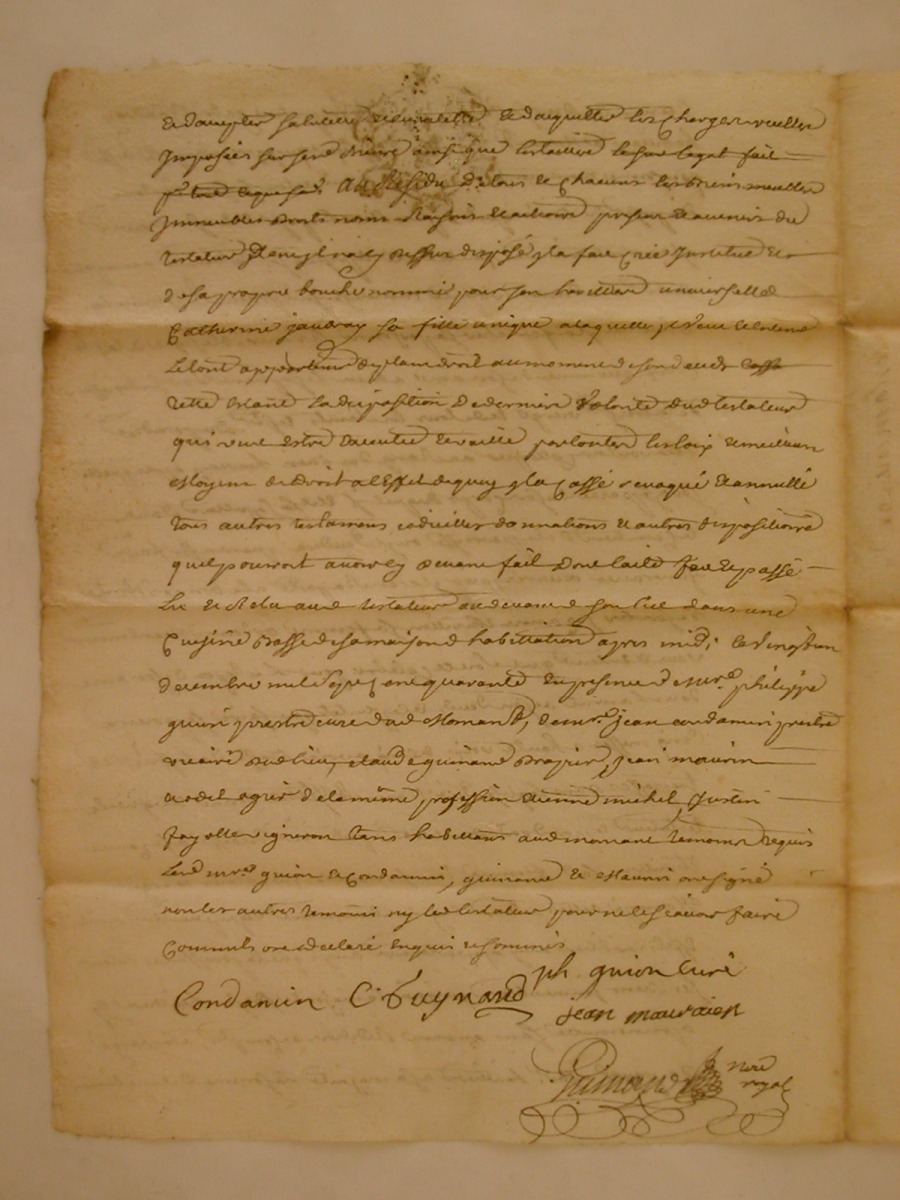 et dacquitter les charges
Imposées sur ses biens ainsi que legat fait
Au Residu de tous et Chacuns ses biens meubles
Immeubles droits noms Raisons et actions presens et avenirs du
testateur dispozé il a fait créé Institué et
de sa propre bouche nommé pour son herittiere universelle
Catherine jaudray sa fille unique a laquelle il veut
le tout appartenir de plain droit au moment de son deceds
cette estant la disposition de derniere volonté dud testateur
qui veut estre executée et vaille par toutes les loix et meilleurs
Moyens de droit a l'Effet de quoy il a Cassé revoqué et annullé
tous autres testamens codicilles donnations et autres dispositions
quil pourroit avoir cy devant fait dont acte fait et passé
Lu et Relu aud testateur au devant de son lict dans une
Cuisine Basse de sa maison d'habittation apres midi le vingt un
decembre mil sept cent quarante en presence de Mre philippe
guion prestre curé dud Mornant, de mre jean condamin prestre
vicaire dud lieu, claude guinand Drapier, jean maurin
de la même profession etienne michel Justin
fayolle vigneron tous habittans aud mornant temoins Requis
Lesd mres guion et Condamin, guinand et Maurin ont signé
non les autres temoins ny led testateur pour ne le sçavoir faire
Comm'ils ont declaré enquis et sommés
ph guion Curé
Condamin C. Guynand
jean mauraien
Guinand nore
royal